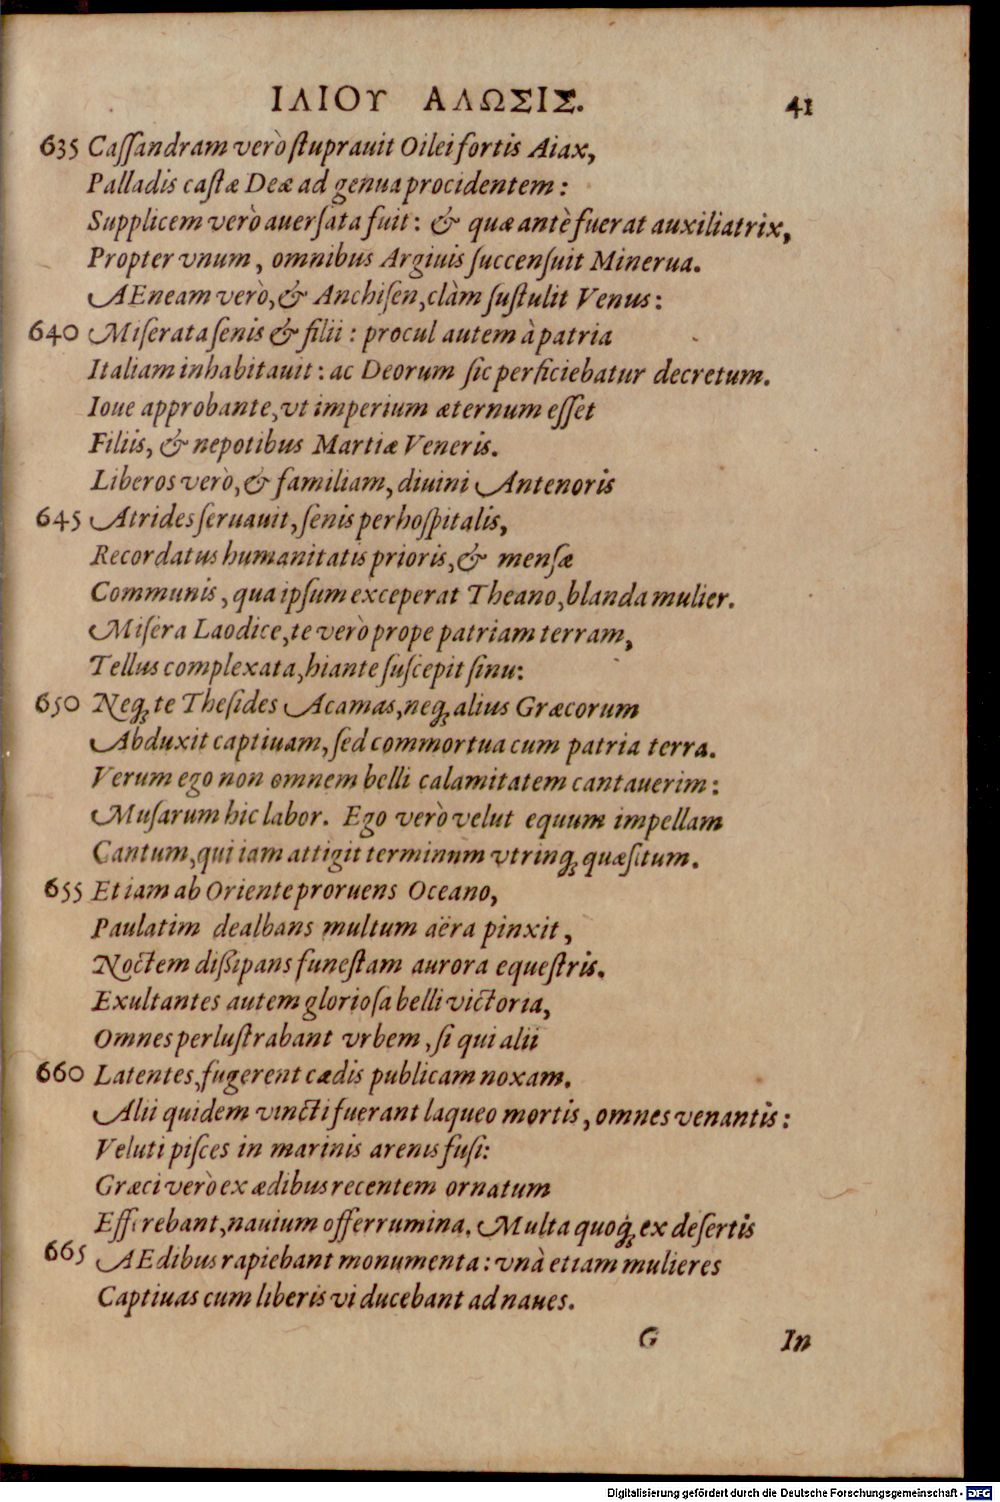 ΙΛΙΟΥ ΑΛΩΣΙΣ. 41
635 Caſſandram verò ſtuprauit Oilei fortis Aiax,
Palladis caſtæ Deæ ad genua procidentem:
Supplicem verò auerſata fuit: & quæ antè fuerat auxiliatrix,
Propter vnum, omnibus Argiuis ſuccenſuit Minerua.
AEneam verò, & Anchiſen, clàm ſuſtulit Venus:
640 Miſerata ſenis & filii: procul autem à patria
Italiam inhabitauit: ac Deorum ſic perficiebatur decretum.
Ioue approbante, vt imperium æternum eſſet
Filiis, & nepotibus Martiæ Veneris.
Liberos verò, & familiam, diuini Antenoris
645 Atrides ſeruauit, ſenis perhoſpitalis,
Recordatus humanitatis prioris, & menſæ
Communis, qua ipſum exceperat Theano, blanda mulier.
Miſera Laodice, te verò prope patriam terram,
Tellus complexata, hiante ſuſcepit ſinu:
650 Neq; te Theſides Acamas, neq; alius Græcorum
Abduxit captiuam, ſed commortua cum patria terra.
Verum ego non omnem belli calamitatem cantauerim:
Muſarum hic labor. Ego verò velut equum impellam
Cantum, qui iam attigit terminum vtrinq; quæſitum.
655 Etiam ab Oriente proruens Oceano,
Paulatim dealbans multum aëra pinxit,
Noctem diſſipans funeſtam aurora equeſtris.
Exultantes autem glorioſa belli victoria,
Omnes perluſtrabant vrbem, ſi qui alii
660 Latentes, fugerent cædis publicam noxam.
Alii quidem vincti fuerant laqueo mortis, omnes venantis:
Veluti piſces in marinis arenis fuſi:
Græci verò ex ædibus recentem ornatum
Efferebant, nauium offerrumina. Multa quoq; ex deſertis
665 AEdibus rapiebant monumenta: vnà etiam mulieres
Captiuas cum liberis vi ducebant ad naues.
G In
Digitalisierung gefördert durch die Deutsche Forschungsgemeinschaft - DFG